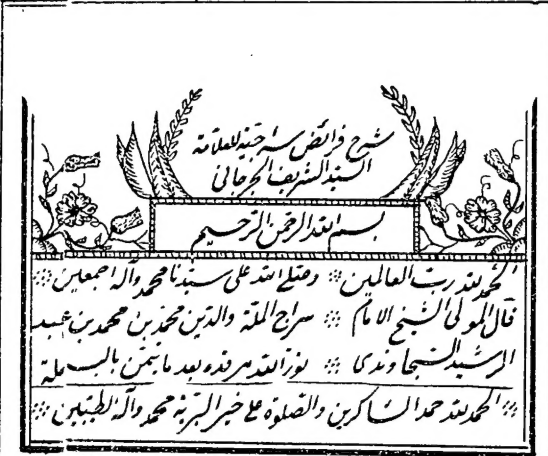 شرح فرائض سراجية للعلامة
السيد الشريف الجرجاني
بسم الله الرحمن الرحيم
الحمد لله رب العالمين وصلى الله على سيدنا محمد وآله اجمعين
قال المولى الشيخ الامام سراج الملة والدين محمد بن محمد بن عبد
الرشيد السجاوندى نور الله مرقده بعد ما تيمن بالبسملة
الحمد لله حمد الشاكرين والصلوة على خير البرية محمد وآله الطيبين